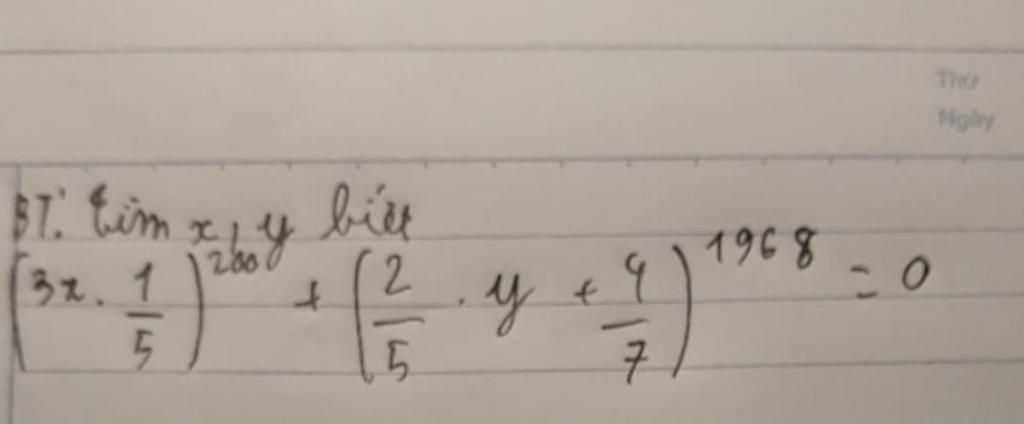 Thứ
Ngày
BT: tìm x, y biết
(3x . 1/5)^200 + (2/5 . y + 4/7)^1968 = 0